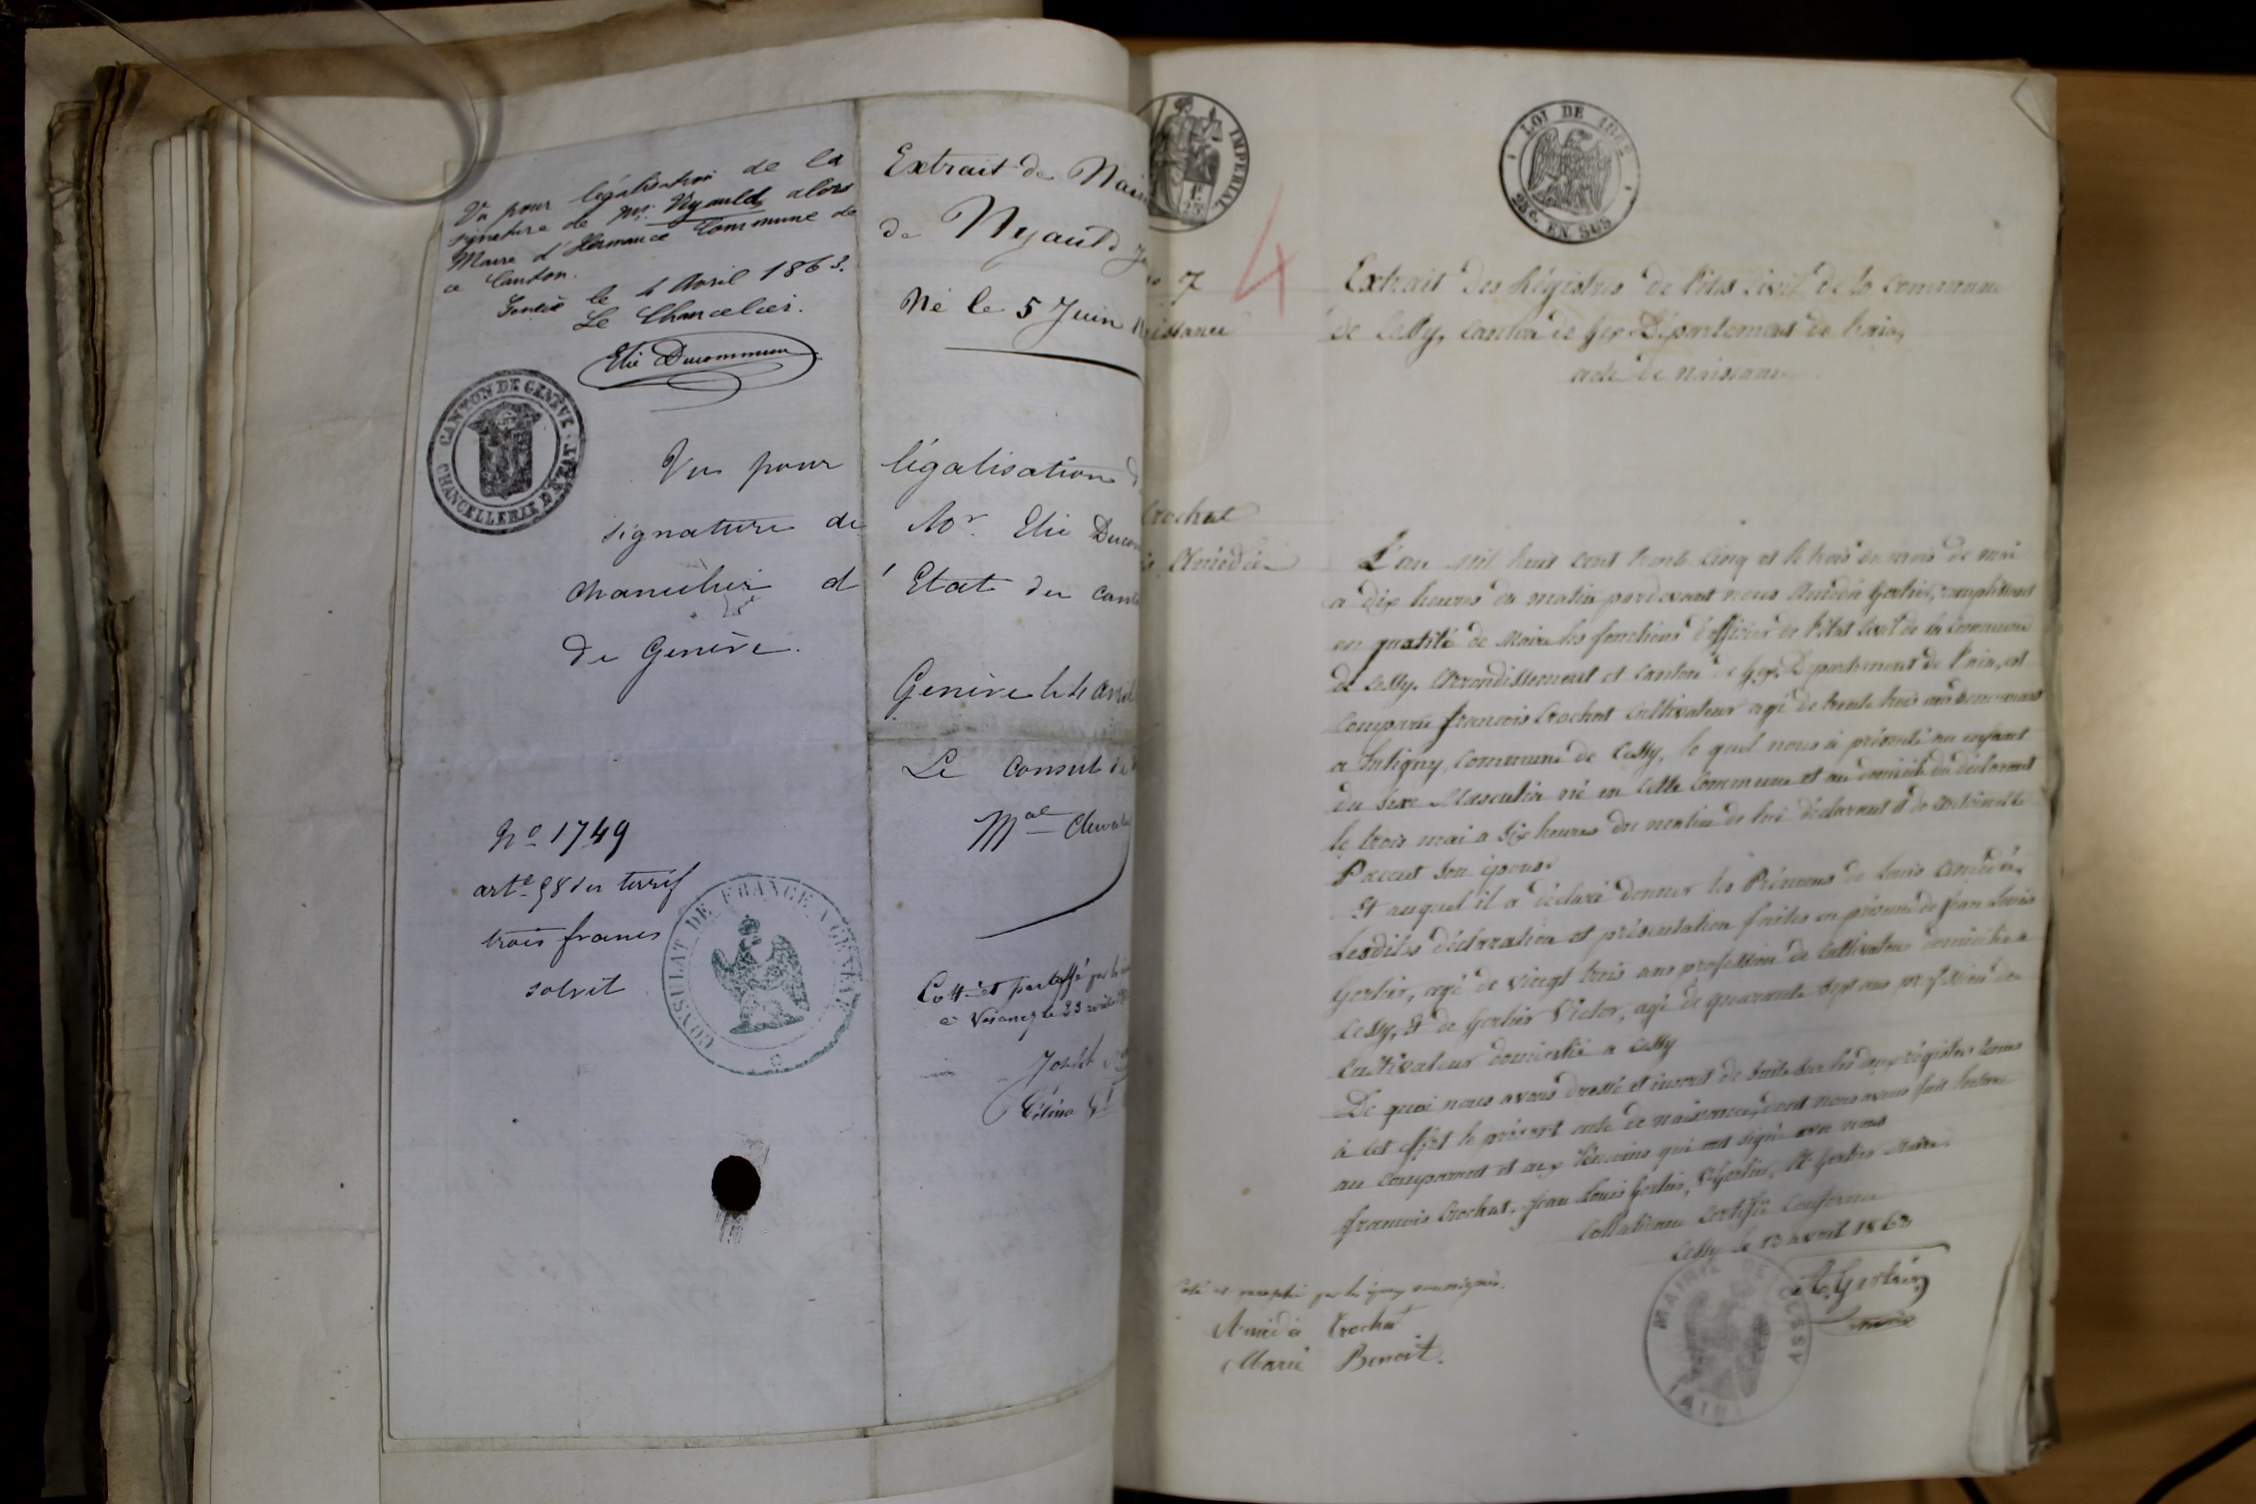 Vu pour légalisation de la
signature de Mr. Nyauld, alors
Maire d'Hermance Commune de
ce Canton.
Genève le 4 Avril 1863.
Le Chancelier.
Elie Ducommun
CANTON DE GENÈVE
CHANCELLERIE D'ÉTAT
Extrait de Nais
de Nyauld
Né le 5 Juin
Vu pour légalisation
signature de Mr. Elie Ducom
chancelier d'Etat du cant
de Genève.
Genève le 4 avril
Le Consul de
Mal Cheval
No 1749
arte 98 du tarif
trois francs
solvit
CONSULAT DE FRANCE A GENÈVE
Cotté et paraffé par les
à Veigney le 23 avril
Joseph
IMPERIAL
LOI DE 1862
25c. EN SUS
7
4
issance
Crochat
Amédée
Extrait des Régistres de l'état civil de la commune
de Cessy, canton de Gex Département de l'ain,
acte de naissance
L'an mil huit cent trente cinq et le trois du mois de mai
a dix heures du matin pardevant nous Amédée Gerlier, remplissant
en qualité de Maire les fonctions d'officier de l'état civil de la Commune
de Cessy, Arrondissement et Canton de Gex, Département de l'ain, est
comparu françois Crochat cultivateur agé de trente trois ans demeurant
a Intigny, commune de Cessy, le quel nous à présenté un enfant
du sexe Masculin né en cette commune et au domicile du déclarant
le trois mai a six heures du matin de lui déclarant et de antoinette
son épouse
Et auquel il a déclaré donner les Prénoms de Louis Amédée,
Lesdites déclaration et présentation faites en présence de Jean Louis
Gerlier, agé de vingt trois ans profession de cultivateur domicilié a
Cessy, Et de Gerlier Victor, agé de quarante sept ans profession de
Cultivateur domicilié a Cessy
De quoi nous avons dressé et inscrit de suite sur les deux régistres tenus
à cet effet le présent acte de naissance, dont nous avons fait lecture
au comparant et aux témoins qui ont signé avec nous
françois Crochat, Jean Louis Gerlier, V. Gerlier, A. Gerlier Maire.
Collationné Certifié Conforme
Cessy le 13 avril 1863
A. Gerlier
maire
MAIRIE DE CESSY
AIN
Coté et paraphé par les époux soussignés.
Amédé Crochat
Marie Benoit.